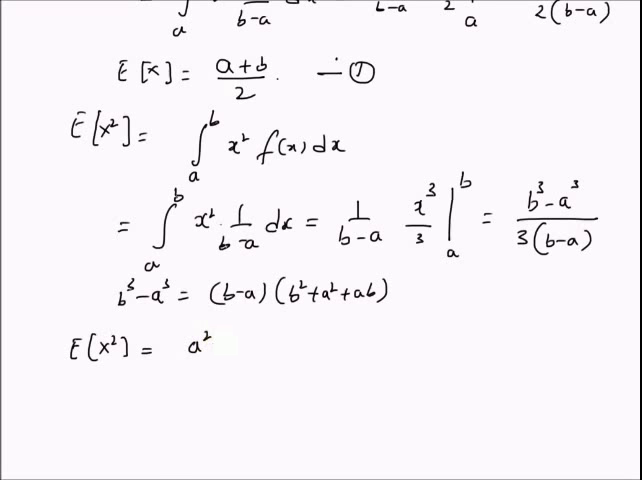 ∫ₐ b-a b-a 2 a 2(b-a)
E[x] = (a+b)/2. — ①
E[x²] = ∫ₐᵇ x² f(x) dx
= ∫ₐᵇ x² · 1/(b-a) dx = 1/(b-a) x³/3 |ₐᵇ = (b³-a³)/(3(b-a))
b³-a³ = (b-a)(b²+a²+ab)
E[x²] = a²